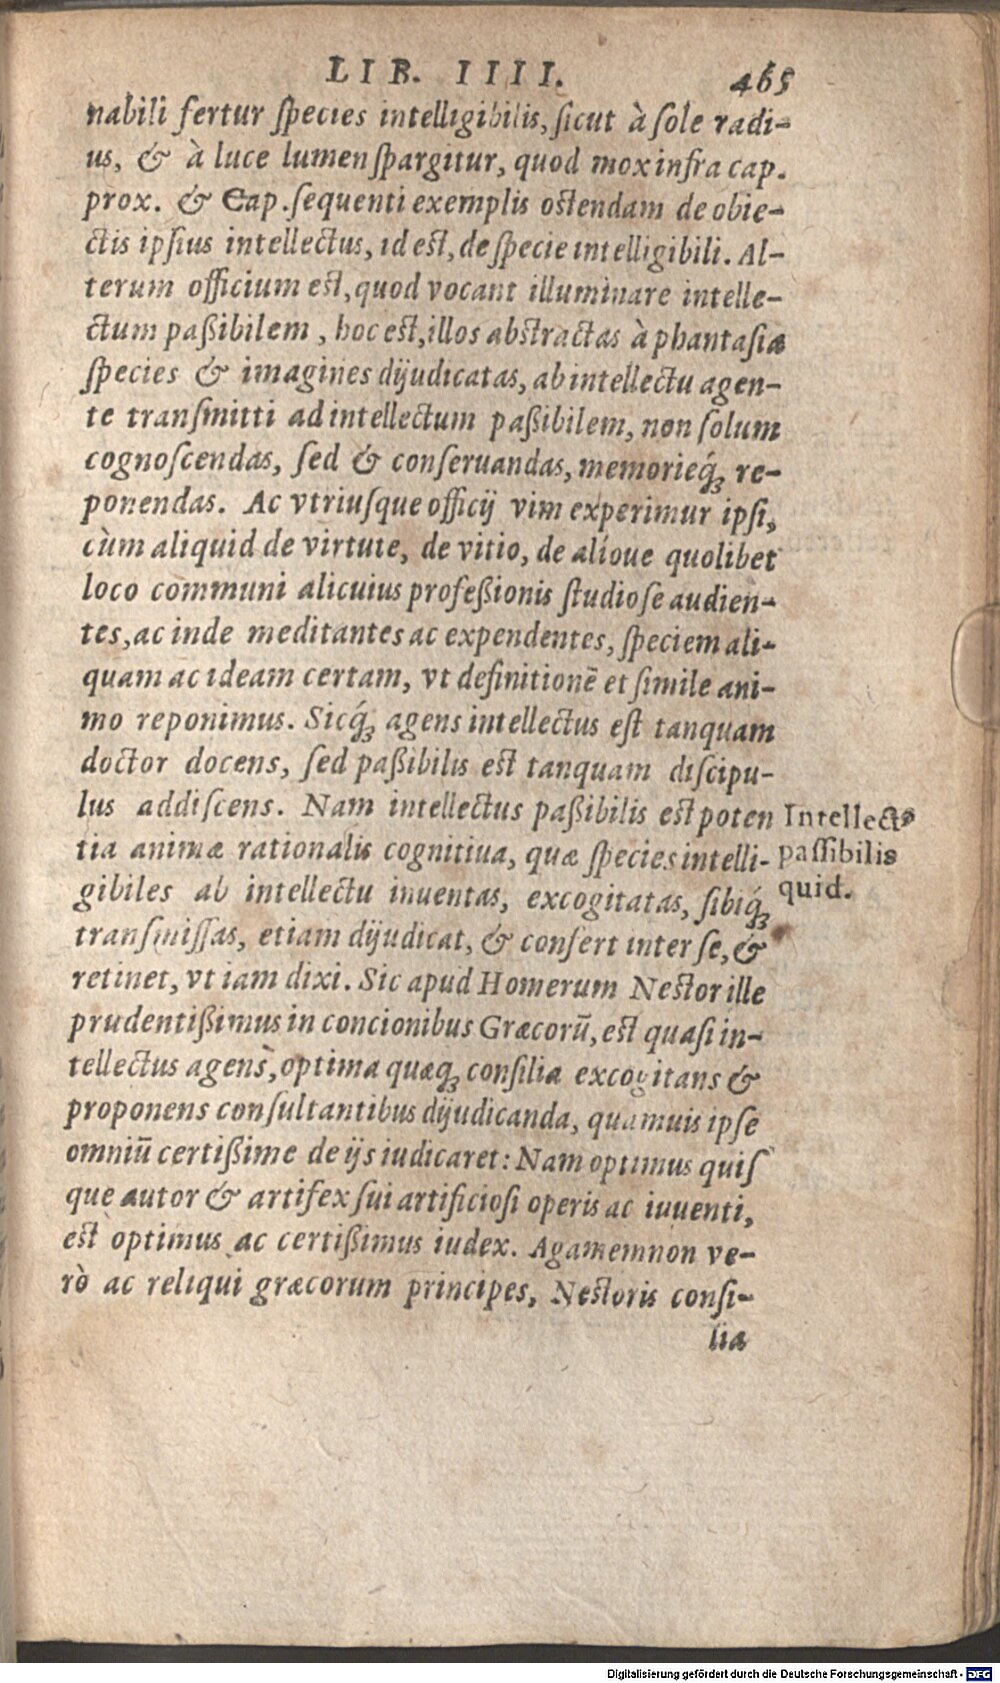 LIB. IIII. 465
nabili fertur ſpecies intelligibilis, ſicut à ſole radi-
us, & à luce lumen ſpargitur, quod mox infra cap.
prox. & Cap. ſequenti exemplis oſtendam de obie-
ctis ipſius intellectus, id eſt, de ſpecie intelligibili. Al-
terum officium eſt, quod vocant illuminare intelle-
ctum paßibilem, hoc eſt, illos abſtractas à phantaſia
ſpecies & imagines dijudicatas, ab intellectu agen-
te tranſmitti ad intellectum paßibilem, non ſolum
cognoſcendas, ſed & conſeruandas, memorieq́ꝫ re-
ponendas. Ac vtriuſque officij vim experimur ipſi,
cùm aliquid de virtute, de vitio, de alíoue quolibet
loco communi alicuius profeßionis ſtudioſe audien-
tes, ac inde meditantes ac expendentes, ſpeciem ali-
quam ac ideam certam, vt definitionē et ſimile ani-
mo reponimus. Sicq́ꝫ agens intellectus eſt tanquam
doctor docens, ſed paßibilis eſt tanquam diſcipu-
lus addiſcens. Nam intellectus paßibilis eſt poten
tia animæ rationalis cognitiua, quæ ſpecies intelli-
gibiles ab intellectu inuentas, excogitatas, ſibiq́ꝫ
tranſmiſſas, etiam dijudicat, & confert inter ſe, &
retinet, vt iam dixi. Sic apud Homerum Neſtor ille
prudentißimus in concionibus Græcorū, eſt quaſi in-
tellectus agens, optima quæqꝫ conſilia excogitans &
proponens conſultantibus dijudicanda, quamuis ipſe
omniū certißime de ijs iudicaret: Nam optimus quiſ
que autor & artifex ſui artificioſi operis ac iuuenti,
eſt optimus ac certißimus iudex. Agamemnon ve-
rò ac reliqui græcorum principes, Neſtoris conſi-
lia
Intellectꝰ
paſſibilis
quid.
Digitalisierung gefördert durch die Deutsche Forschungsgemeinschaft - DFG